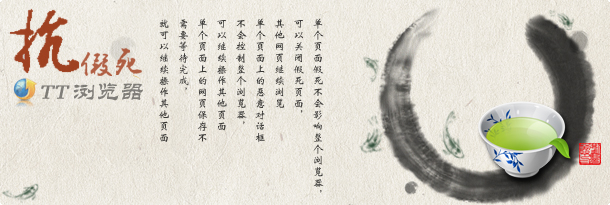 抗假死
TT浏览器
单个页面假死不会影响整个浏览器，
可以关闭假死页面，
其他网页继续浏览
单个页面上的恶意对话框
不会控制整个浏览器，
可以继续操作其他页面
单个页面上的网页保存不
需要等待完成，
就可以继续操作其他页面